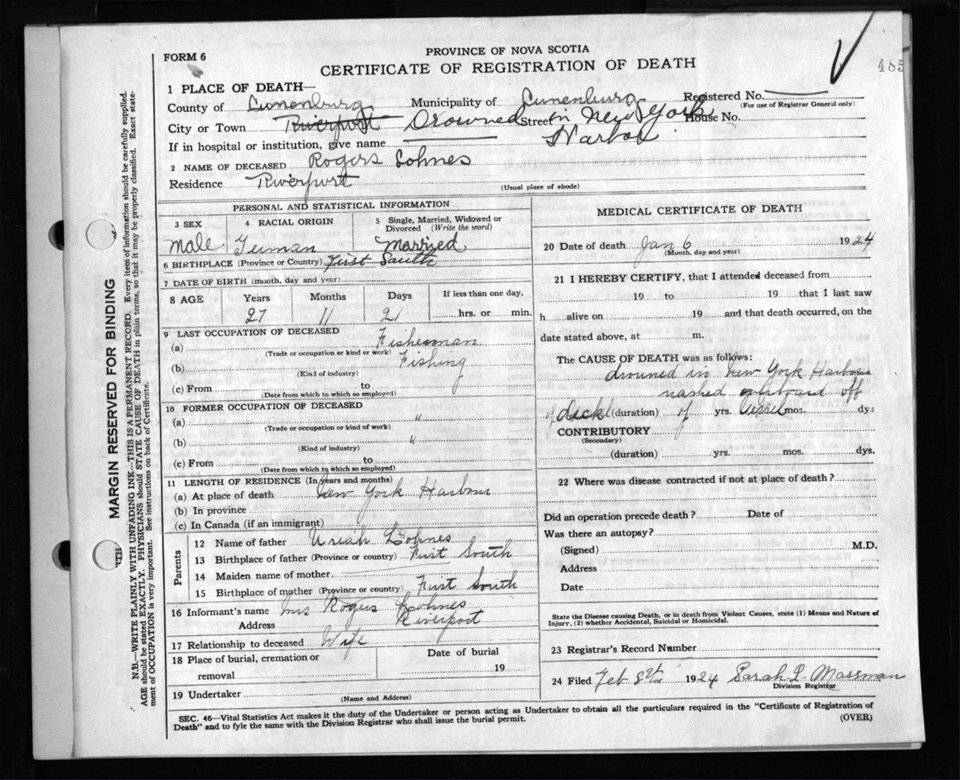 FORM 6
PROVINCE OF NOVA SCOTIA
CERTIFICATE OF REGISTRATION OF DEATH
485
1 PLACE OF DEATH—
County of Lunenburg Municipality of Lunenburg Registered No.
(For use of Registrar General only)
City or Town Riverport Drowned Street in New York House No.
If in hospital or institution, give name Harbor
2 NAME OF DECEASED Rogers Lohnes
Residence Riverport
(Usual place of abode)
PERSONAL AND STATISTICAL INFORMATION
3 SEX
4 RACIAL ORIGIN
5 Single, Married, Widowed or Divorced (Write the word)
Male German Married
6 BIRTHPLACE (Province or Country) First South
7 DATE OF BIRTH (month, day and year)
8 AGE Years Months Days If less than one day,
27 11 21 hrs. or min.
9 LAST OCCUPATION OF DECEASED
(a) Fisherman
(Trade or occupation or kind or work)
(b) Fishing
(Kind of industry)
(c) From to
(Date from which to which so employed)
10 FORMER OCCUPATION OF DECEASED
(a) "
(Trade or occupation or kind of work)
(b) "
(Kind of industry)
(c) From to
(Date from which to which so employed)
11 LENGTH OF RESIDENCE (In years and months)
(a) At place of death New York Harbour
(b) In province
(c) In Canada (if an immigrant)
Parents
12 Name of father Uriah Lohnes
13 Birthplace of father (Province or country) First South
14 Maiden name of mother
15 Birthplace of mother (Province or country) First South
16 Informant's name Mrs Rogers Lohnes
Address Riverport
17 Relationship to deceased Wife
18 Place of burial, cremation or removal
Date of burial
19
19 Undertaker
(Name and Address)
MEDICAL CERTIFICATE OF DEATH
20 Date of death Jan 6 1924
(Month, day and year)
21 I HEREBY CERTIFY, that I attended deceased from
19 to 19 that I last saw
h alive on 19 and that death occurred, on the
date stated above, at m.
The CAUSE OF DEATH was as follows:
drowned in New York Harbour
washed off
of deck (duration) of yrs. Vessel mos. dys
CONTRIBUTORY
(Secondary)
(duration) yrs. mos. dys.
22 Where was disease contracted if not at place of death?
Did an operation precede death? Date of
Was there an autopsy?
(Signed) M.D.
Address
Date
State the Disease causing Death, or in death from Violent Causes, state (1) Means and Nature of
Injury, (2) whether Accidental, Suicidal or Homicidal.
23 Registrar's Record Number
24 Filed Feb 8th 1924 Sarah
Division Registrar
SEC. 46—Vital Statistics Act makes it the duty of the Undertaker or person acting as Undertaker to obtain all the particulars required in the "Certificate of Registration of
Death" and to fyle the same with the Division Registrar who shall issue the burial permit.
(OVER)
MARGIN RESERVED FOR BINDING
N.B.—WRITE PLAINLY WITH UNFADING INK—THIS IS A PERMANENT RECORD. Every item of information should be carefully supplied.
AGE should be stated EXACTLY. PHYSICIANS should STATE CAUSE OF DEATH in plain terms, so that it may be properly classified. Exact state-
ment of OCCUPATION is very important. See instructions on back of Certificate.